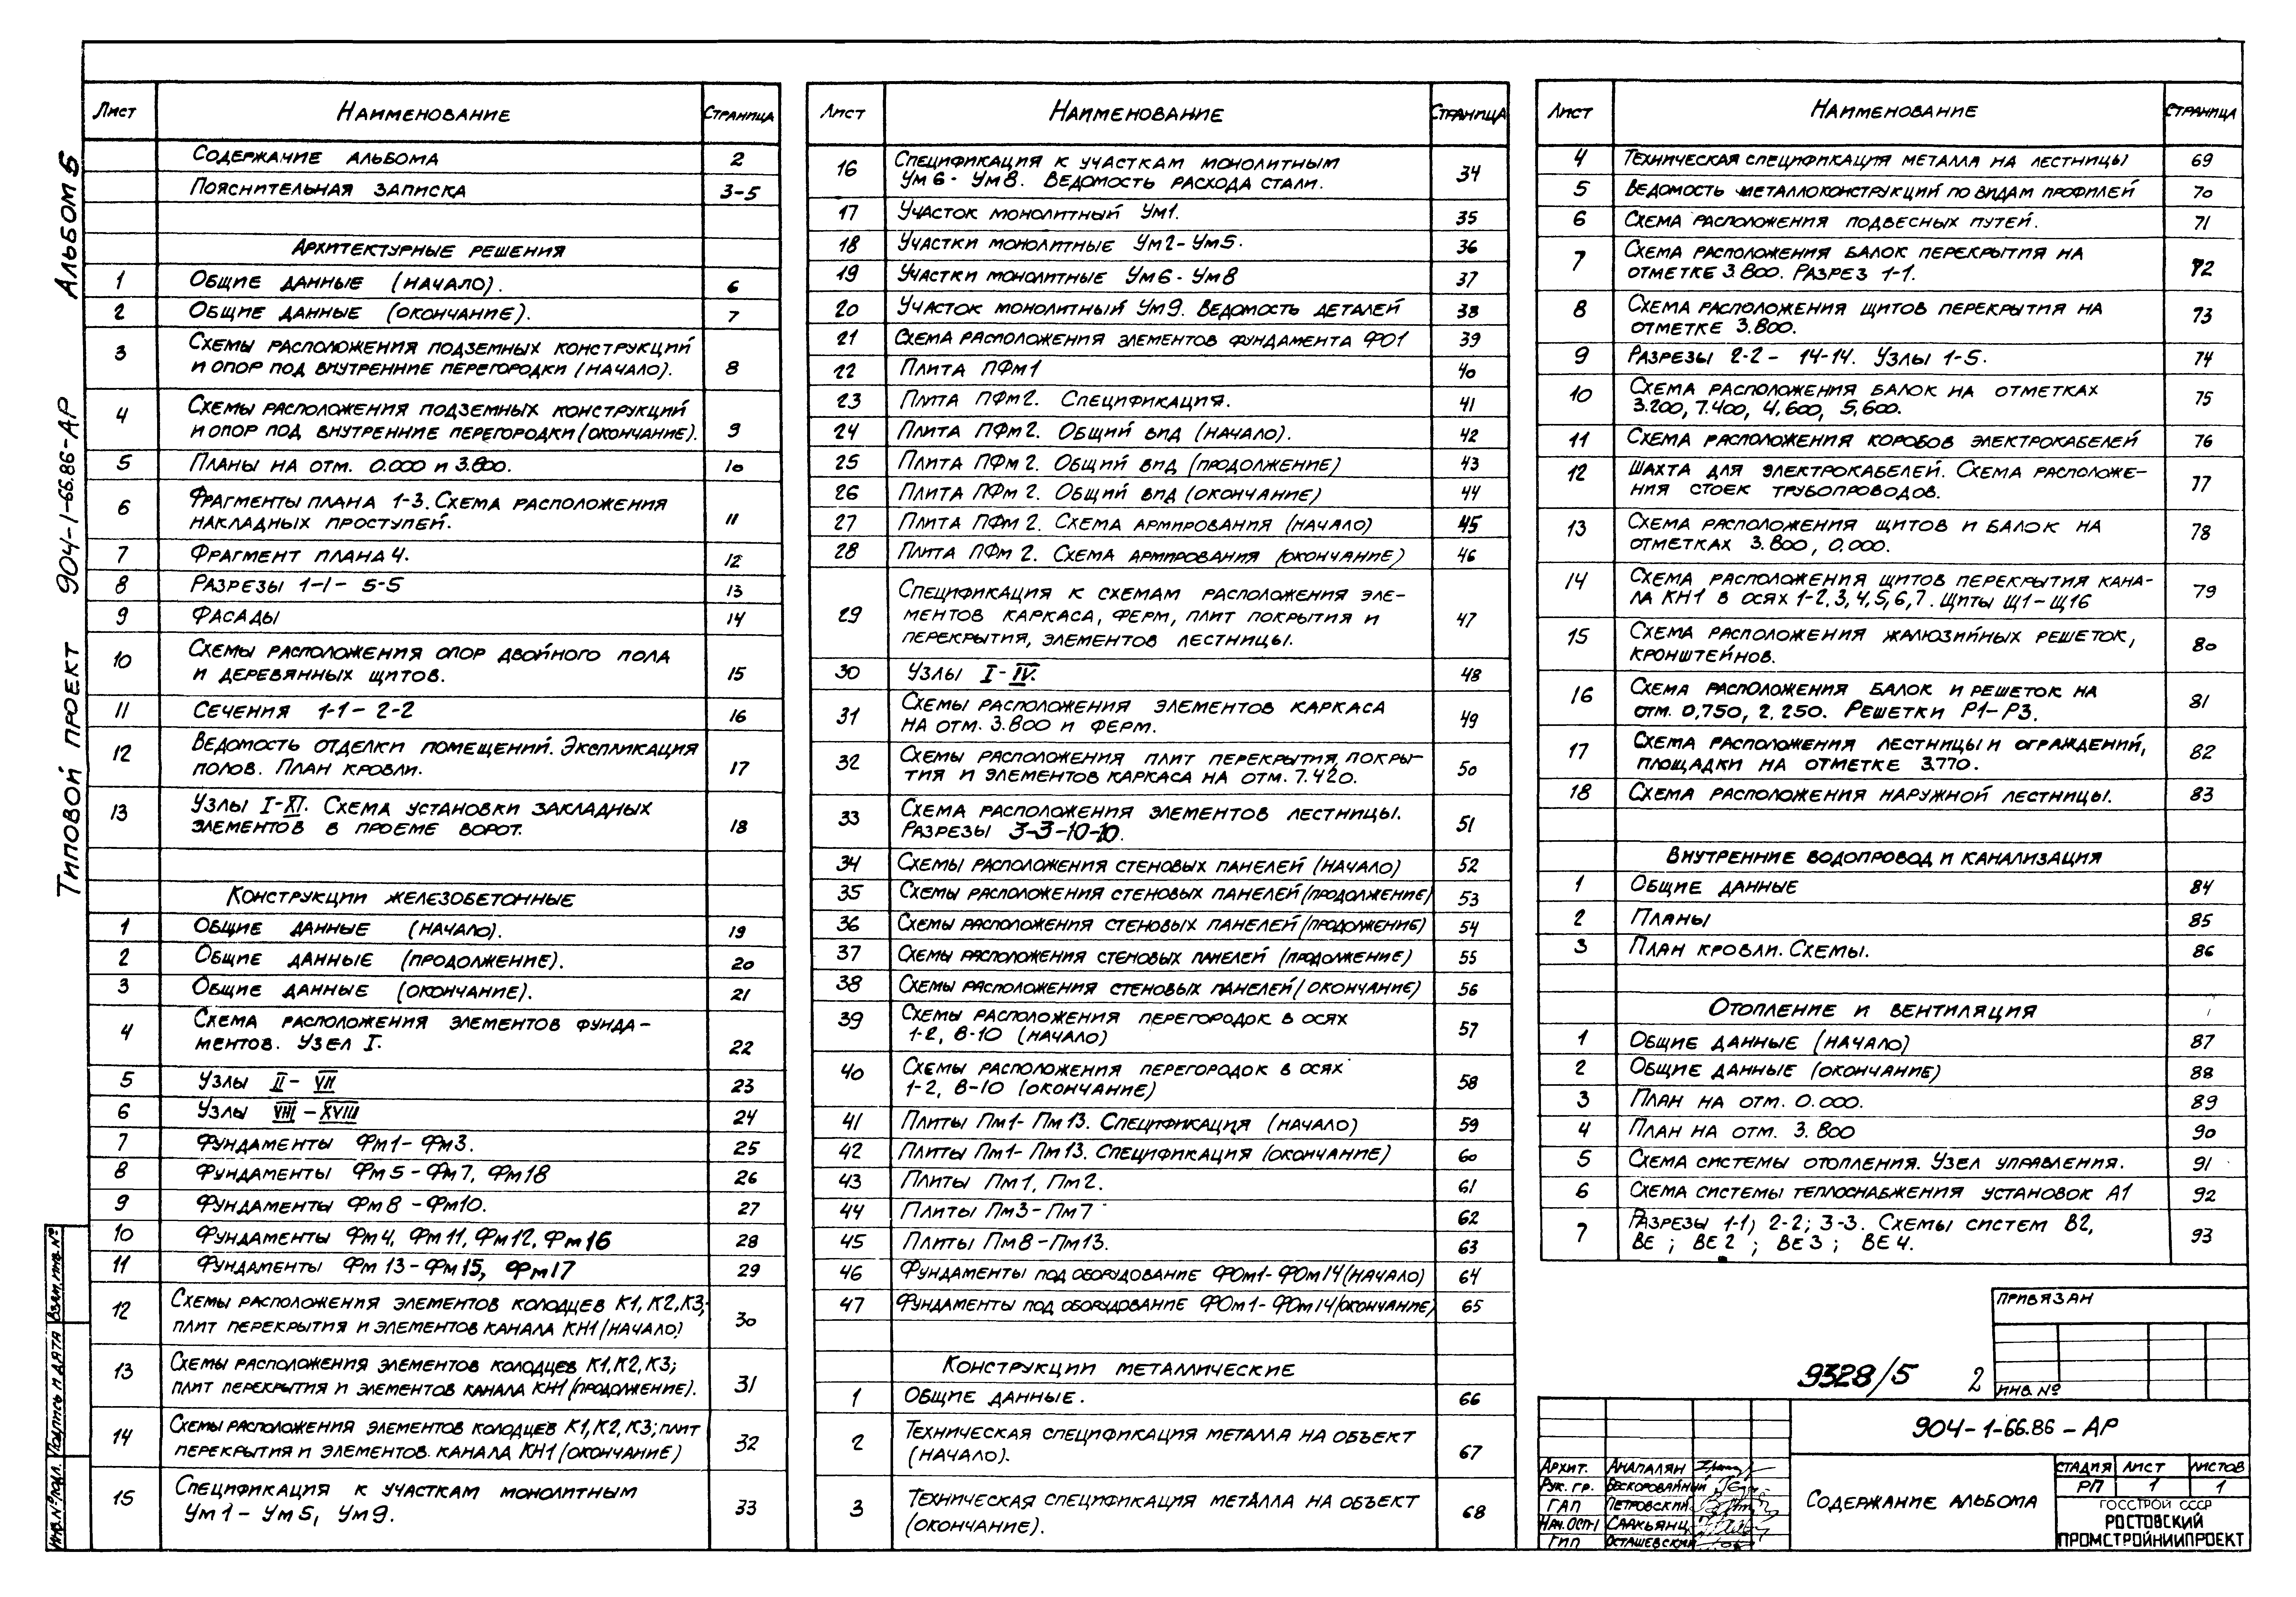 Типовой проект 904-1-66.86-АР Альбом 5
Лист Наименование Страница
Содержание альбома 2
Пояснительная записка 3-5
Архитектурные решения
1 Общие данные (начало). 6
2 Общие данные (окончание). 7
3 Схемы расположения подземных конструкций
и опор под внутренние перегородки (начало). 8
4 Схемы расположения подземных конструкций
и опор под внутренние перегородки (окончание). 9
5 Планы на отм. 0.000 и 3.800. 10
6 Фрагменты плана 1-3. Схема расположения
накладных проступей. 11
7 Фрагмент плана 4. 12
8 Разрезы 1-1 - 5-5 13
9 Фасады 14
10 Схемы расположения опор двойного пола
и деревянных щитов. 15
11 Сечения 1-1 - 2-2 16
12 Ведомость отделки помещений. Экспликация
полов. План кровли. 17
13 Узлы I-XI. Схема установки закладных
элементов в проеме ворот. 18
Конструкции железобетонные
1 Общие данные (начало). 19
2 Общие данные (продолжение). 20
3 Общие данные (окончание). 21
4 Схема расположения элементов фунда-
ментов. Узел I. 22
5 Узлы II - VII 23
6 Узлы VIII - XVIII 24
7 Фундаменты Фм1 - Фм3. 25
8 Фундаменты Фм5 - Фм7, Фм18 26
9 Фундаменты Фм8 - Фм10. 27
10 Фундаменты Фм4, Фм11, Фм12, Фм16 28
11 Фундаменты Фм13 - Фм15, Фм17 29
12 Схемы расположения элементов колодцев К1, К2, К3;
плит перекрытия и элементов канала КН1 (начало) 30
13 Схемы расположения элементов колодцев К1, К2, К3;
плит перекрытия и элементов канала КН1 (продолжение). 31
14 Схемы расположения элементов колодцев К1, К2, К3; плит
перекрытия и элементов канала КН1 (окончание) 32
15 Спецификация к участкам монолитным
Ум1 - Ум5, Ум9. 33
Лист Наименование Страница
16 Спецификация к участкам монолитным
Ум6 - Ум8. Ведомость расхода стали. 34
17 Участок монолитный Ум1. 35
18 Участки монолитные Ум2 - Ум5. 36
19 Участки монолитные Ум6 - Ум8 37
20 Участок монолитный Ум9. Ведомость деталей 38
21 Схема расположения элементов фундамента ФО1 39
22 Плита ПФм1 40
23 Плита ПФм2. Спецификация. 41
24 Плита ПФм2. Общий вид (начало). 42
25 Плита ПФм2. Общий вид (продолжение) 43
26 Плита ПФм2. Общий вид (окончание) 44
27 Плита ПФм2. Схема армирования (начало) 45
28 Плита ПФм2. Схема армирования (окончание) 46
29 Спецификация к схемам расположения эле-
ментов каркаса, ферм, плит покрытия и
перекрытия, элементов лестницы. 47
30 Узлы I - IV. 48
31 Схемы расположения элементов каркаса
на отм. 3.800 и ферм. 49
32 Схемы расположения плит перекрытия, покры-
тия и элементов каркаса на отм. 7.420. 50
33 Схема расположения элементов лестницы.
Разрезы 3-3-10-10. 51
34 Схемы расположения стеновых панелей (начало) 52
35 Схемы расположения стеновых панелей (продолжение) 53
36 Схемы расположения стеновых панелей (продолжение) 54
37 Схемы расположения стеновых панелей (продолжение) 55
38 Схемы расположения стеновых панелей (окончание) 56
39 Схемы расположения перегородок в осях
1-2, 8-10 (начало) 57
40 Схемы расположения перегородок в осях
1-2, 8-10 (окончание) 58
41 Плиты Пм1 - Пм13. Спецификация (начало) 59
42 Плиты Пм1 - Пм13. Спецификация (окончание) 60
43 Плиты Пм1, Пм2. 61
44 Плиты Пм3 - Пм7 62
45 Плиты Пм8 - Пм13. 63
46 Фундаменты под оборудование ФОм1 - ФОм14 (начало) 64
47 Фундаменты под оборудование ФОм1 - ФОм14 (окончание) 65
Конструкции металлические
1 Общие данные. 66
2 Техническая спецификация металла на объект
(начало). 67
3 Техническая спецификация металла на объект
(окончание). 68
Лист Наименование Страница
4 Техническая спецификация металла на лестницы 69
5 Ведомость металлоконструкций по видам профилей 70
6 Схема расположения подвесных путей. 71
7 Схема расположения балок перекрытия на
отметке 3.800. Разрез 1-1. 72
8 Схема расположения щитов перекрытия на
отметке 3.800. 73
9 Разрезы 2-2 - 14-14. Узлы 1-5. 74
10 Схема расположения балок на отметках
3.200, 7.400, 4.600, 5.600. 75
11 Схема расположения коробов электрокабелей 76
12 Шахта для электрокабелей. Схема расположе-
ния стоек трубопроводов. 77
13 Схема расположения щитов и балок на
отметках 3.800, 0.000. 78
14 Схема расположения щитов перекрытия кана-
ла КН1 в осях 1-2, 3, 4, 5, 6, 7. Щиты Щ1-Щ16 79
15 Схема расположения жалюзийных решеток,
кронштейнов. 80
16 Схема расположения балок и решеток на
отм. 0,750, 2,250. Решетки Р1-Р3. 81
17 Схема расположения лестницы и ограждений,
площадки на отметке 3.770. 82
18 Схема расположения наружной лестницы. 83
Внутренние водопровод и канализация
1 Общие данные 84
2 Планы 85
3 План кровли. Схемы. 86
Отопление и вентиляция
1 Общие данные (начало) 87
2 Общие данные (окончание) 88
3 План на отм. 0.000. 89
4 План на отм. 3.800 90
5 Схема системы отопления. Узел управления. 91
6 Схема системы теплоснабжения установок А1 92
7 Разрезы 1-1; 2-2; 3-3. Схемы систем В2,
ВЕ ; ВЕ2 ; ВЕ3 ; ВЕ4. 93
Привязан
Инв. №
9328/5 2
904-1-66.86 - АР
Архит. Анапалян
Рук. гр. Бескоровайный
ГАП Петровский
Нач. ОСП-1 Саакьянц
ГИП Осташевский
Содержание альбома
Стадия Лист Листов
РП 1 1
ГОССТРОЙ СССР
РОСТОВСКИЙ
ПРОМСТРОЙНИИПРОЕКТ
Инв. № подл. Подпись и дата Взам. инв. №